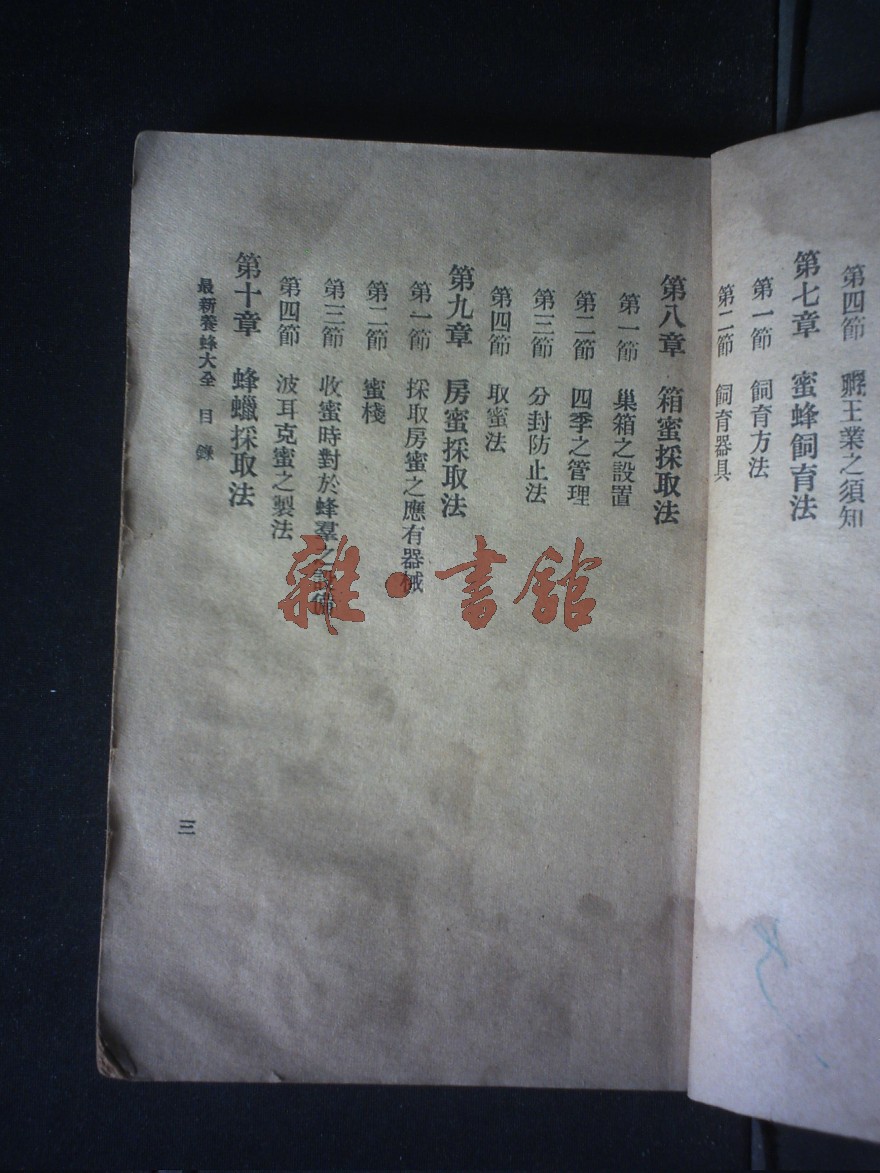 第四節　蜂王業之須知
第七章　蜜蜂飼育法
第一節　飼育方法
第二節　飼育器具
第八章　箱蜜採取法
第一節　巢箱之設置
第二節　四季之管理
第三節　分封防止法
第四節　取蜜法
第九章　房蜜採取法
第一節　採取房蜜之應有器械
第二節　蜜棧
第三節　收蜜時對於蜂羣之設備
第四節　波耳克蜜之製法
第十章　蜂蠟採取法
最新養蜂大全　目錄
三
雜·書館